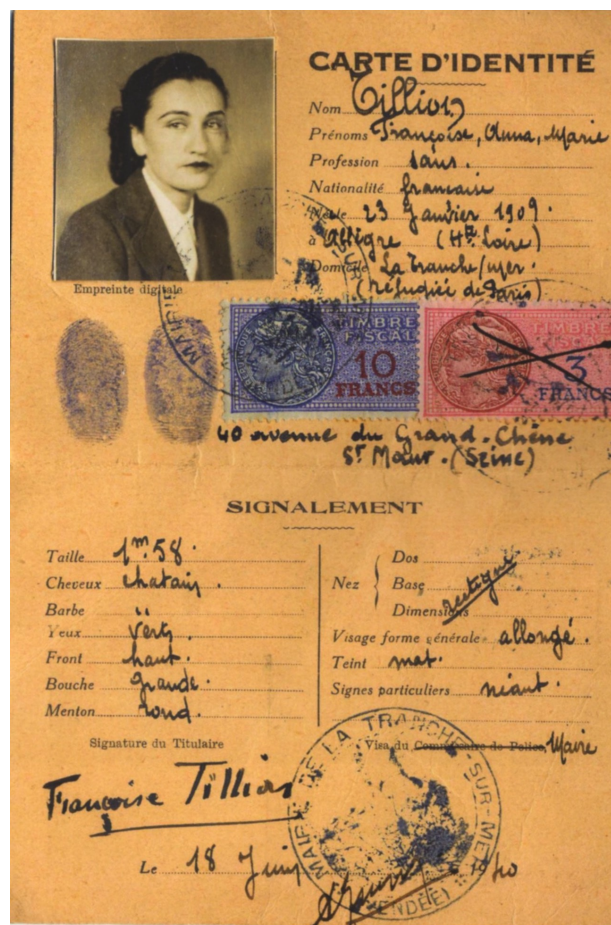 CARTE D'IDENTITÉ
Nom Tillion
Prénoms Françoise, Anna, Marie
Profession sans.
Nationalité française
Née le 23 Janvier 1909.
à Allègre (Hte Loire)
Domicile La Tranche/mer.
(réfugiée de Paris)
Empreinte digitale
TIMBRE FISCAL
10
FRANCS
TIMBRE FISCAL
3
FRANCS
40 avenue du Grand-Chêne
St Maur. (Seine)
SIGNALEMENT
Taille 1m.58.
Cheveux chatain
Barbe "
Yeux verts
Front haut.
Bouche grande.
Menton rond.
Nez
Dos
Base rectiligne
Dimensions
Visage forme générale allongé.
Teint mat.
Signes particuliers néant.
Signature du Titulaire
Visa du Commissaire de Police, Maire
Françoise Tillion
MAIRIE DE LA TRANCHE-SUR-MER
(VENDÉE)
Le 18 Juin 1940